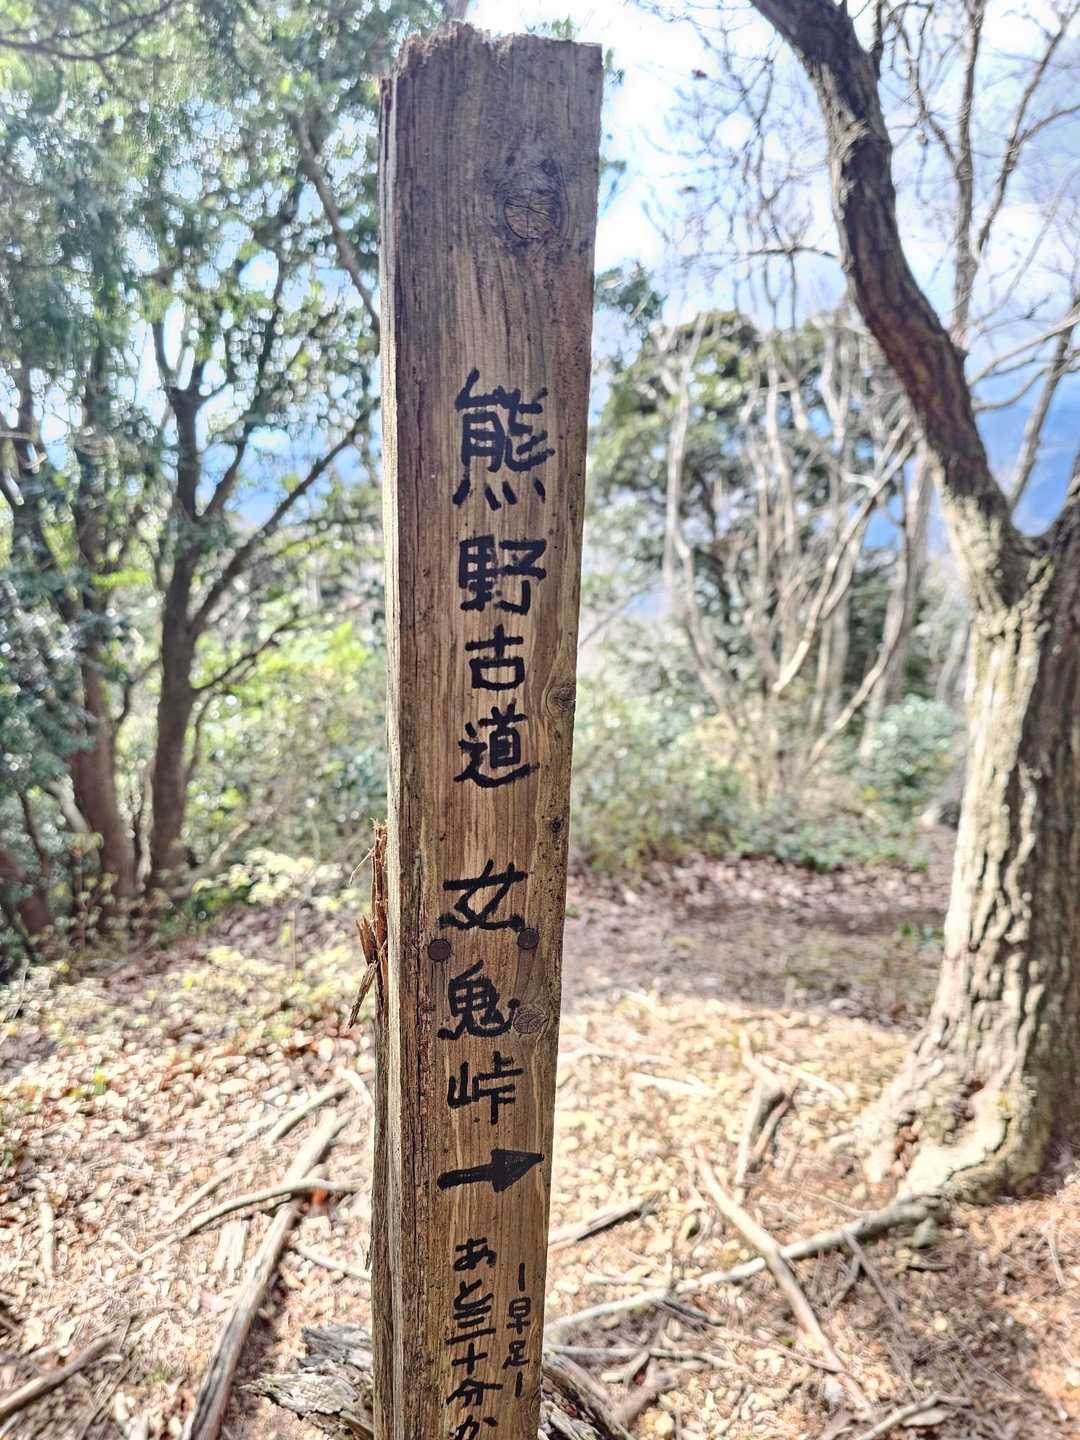 熊野古道 女鬼峠 →
あと三十分か
ー早足ー